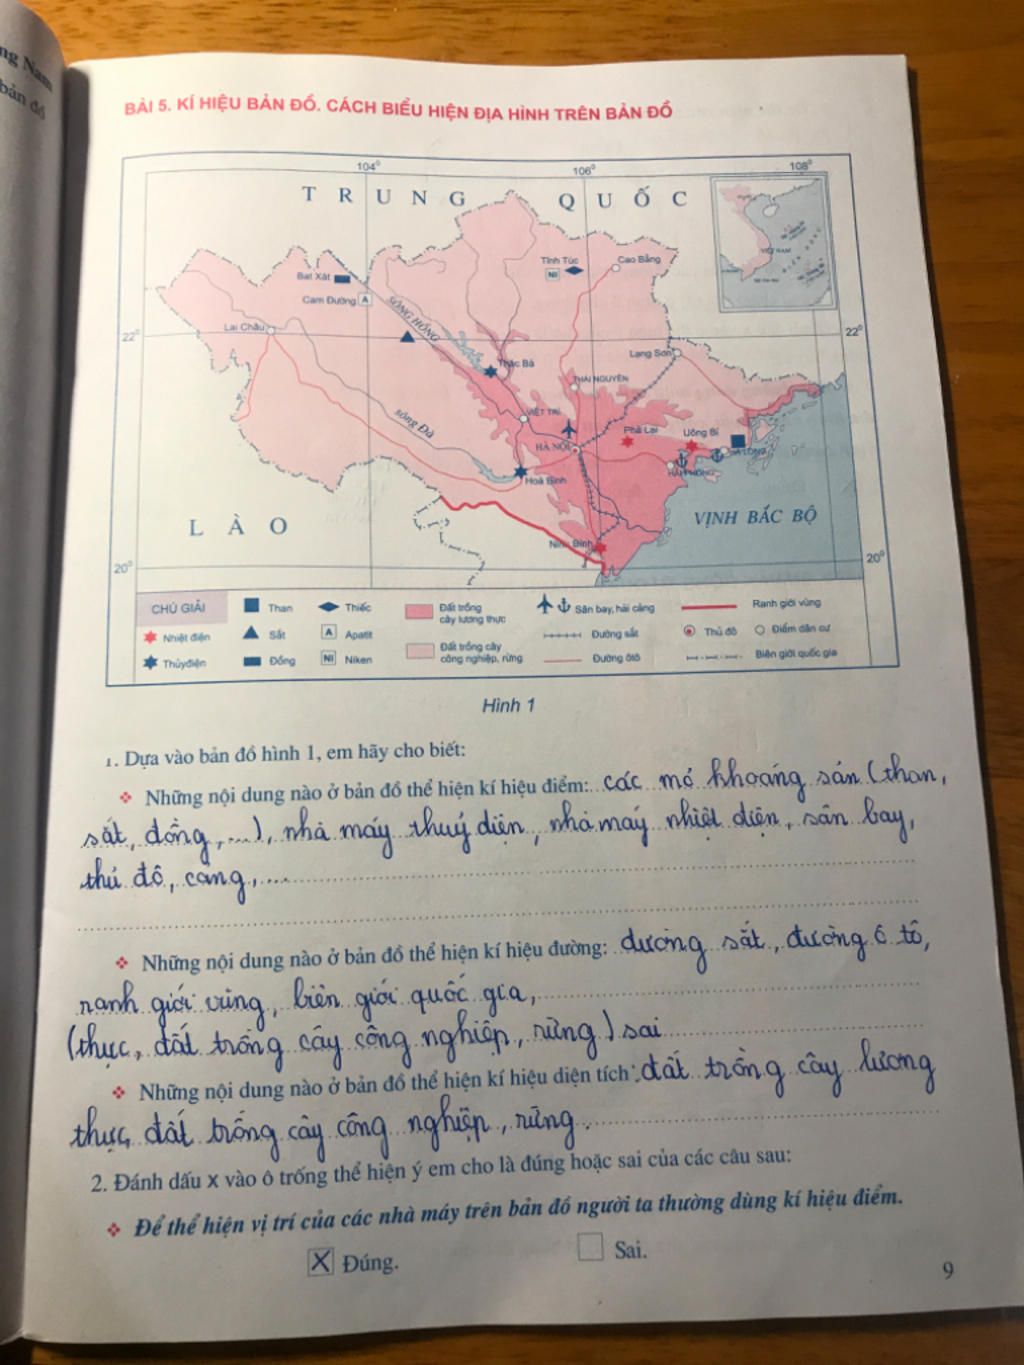 ng Nam
bản đồ
BÀI 5. KÍ HIỆU BẢN ĐỒ. CÁCH BIỂU HIỆN ĐỊA HÌNH TRÊN BẢN ĐỒ
104⁰ 106⁰ 108⁰
TRUNG QUỐC
Tĩnh Túc
Cao Bằng
NI
Bat Xát
Cam Đường A
VIỆT NAM
SÔNG HỒNG
22⁰ Lai Châu 22⁰
Lạng Sơn
Thác Bà
THÁI NGUYÊN
VIỆT TRÌ
sông Đà
Phả Lại
Uông Bí
HÀ NỘI
HẠ LONG
HẢI PHÒNG
Hoà Bình
LÀO
VỊNH BẮC BỘ
Ninh Bình
20⁰ 20⁰
CHÚ GIẢI
Nhiệt điện
Thủyđiện
Than
Sắt
Đồng
Thiếc
A Apatit
NI Niken
Đất trồng
cây lương thực
Đất trồng cây
công nghiệp, rừng
Sân bay, hải cảng
Đường sắt
Đường ôtô
Ranh giới vùng
Thủ đô
Điểm dân cư
Biên giới quốc gia
Hình 1
1. Dựa vào bản đồ hình 1, em hãy cho biết:
❖ Những nội dung nào ở bản đồ thể hiện kí hiệu điểm: các mỏ khoáng sản (than,
sắt, đồng, ...), nhà máy thuỷ điện, nhà máy nhiệt điện, sân bay,
thủ đô, cảng, ...
❖ Những nội dung nào ở bản đồ thể hiện kí hiệu đường: đường sắt, đường ô tô,
ranh giới vùng, biên giới quốc gia,
(thực, đất trồng cây công nghiệp, rừng) sai
❖ Những nội dung nào ở bản đồ thể hiện kí hiệu diện tích: đất trồng cây lương
thực, đất trồng cây công nghiệp, rừng.
2. Đánh dấu x vào ô trống thể hiện ý em cho là đúng hoặc sai của các câu sau:
❖ Để thể hiện vị trí của các nhà máy trên bản đồ người ta thường dùng kí hiệu điểm.
X Đúng. Sai.
9